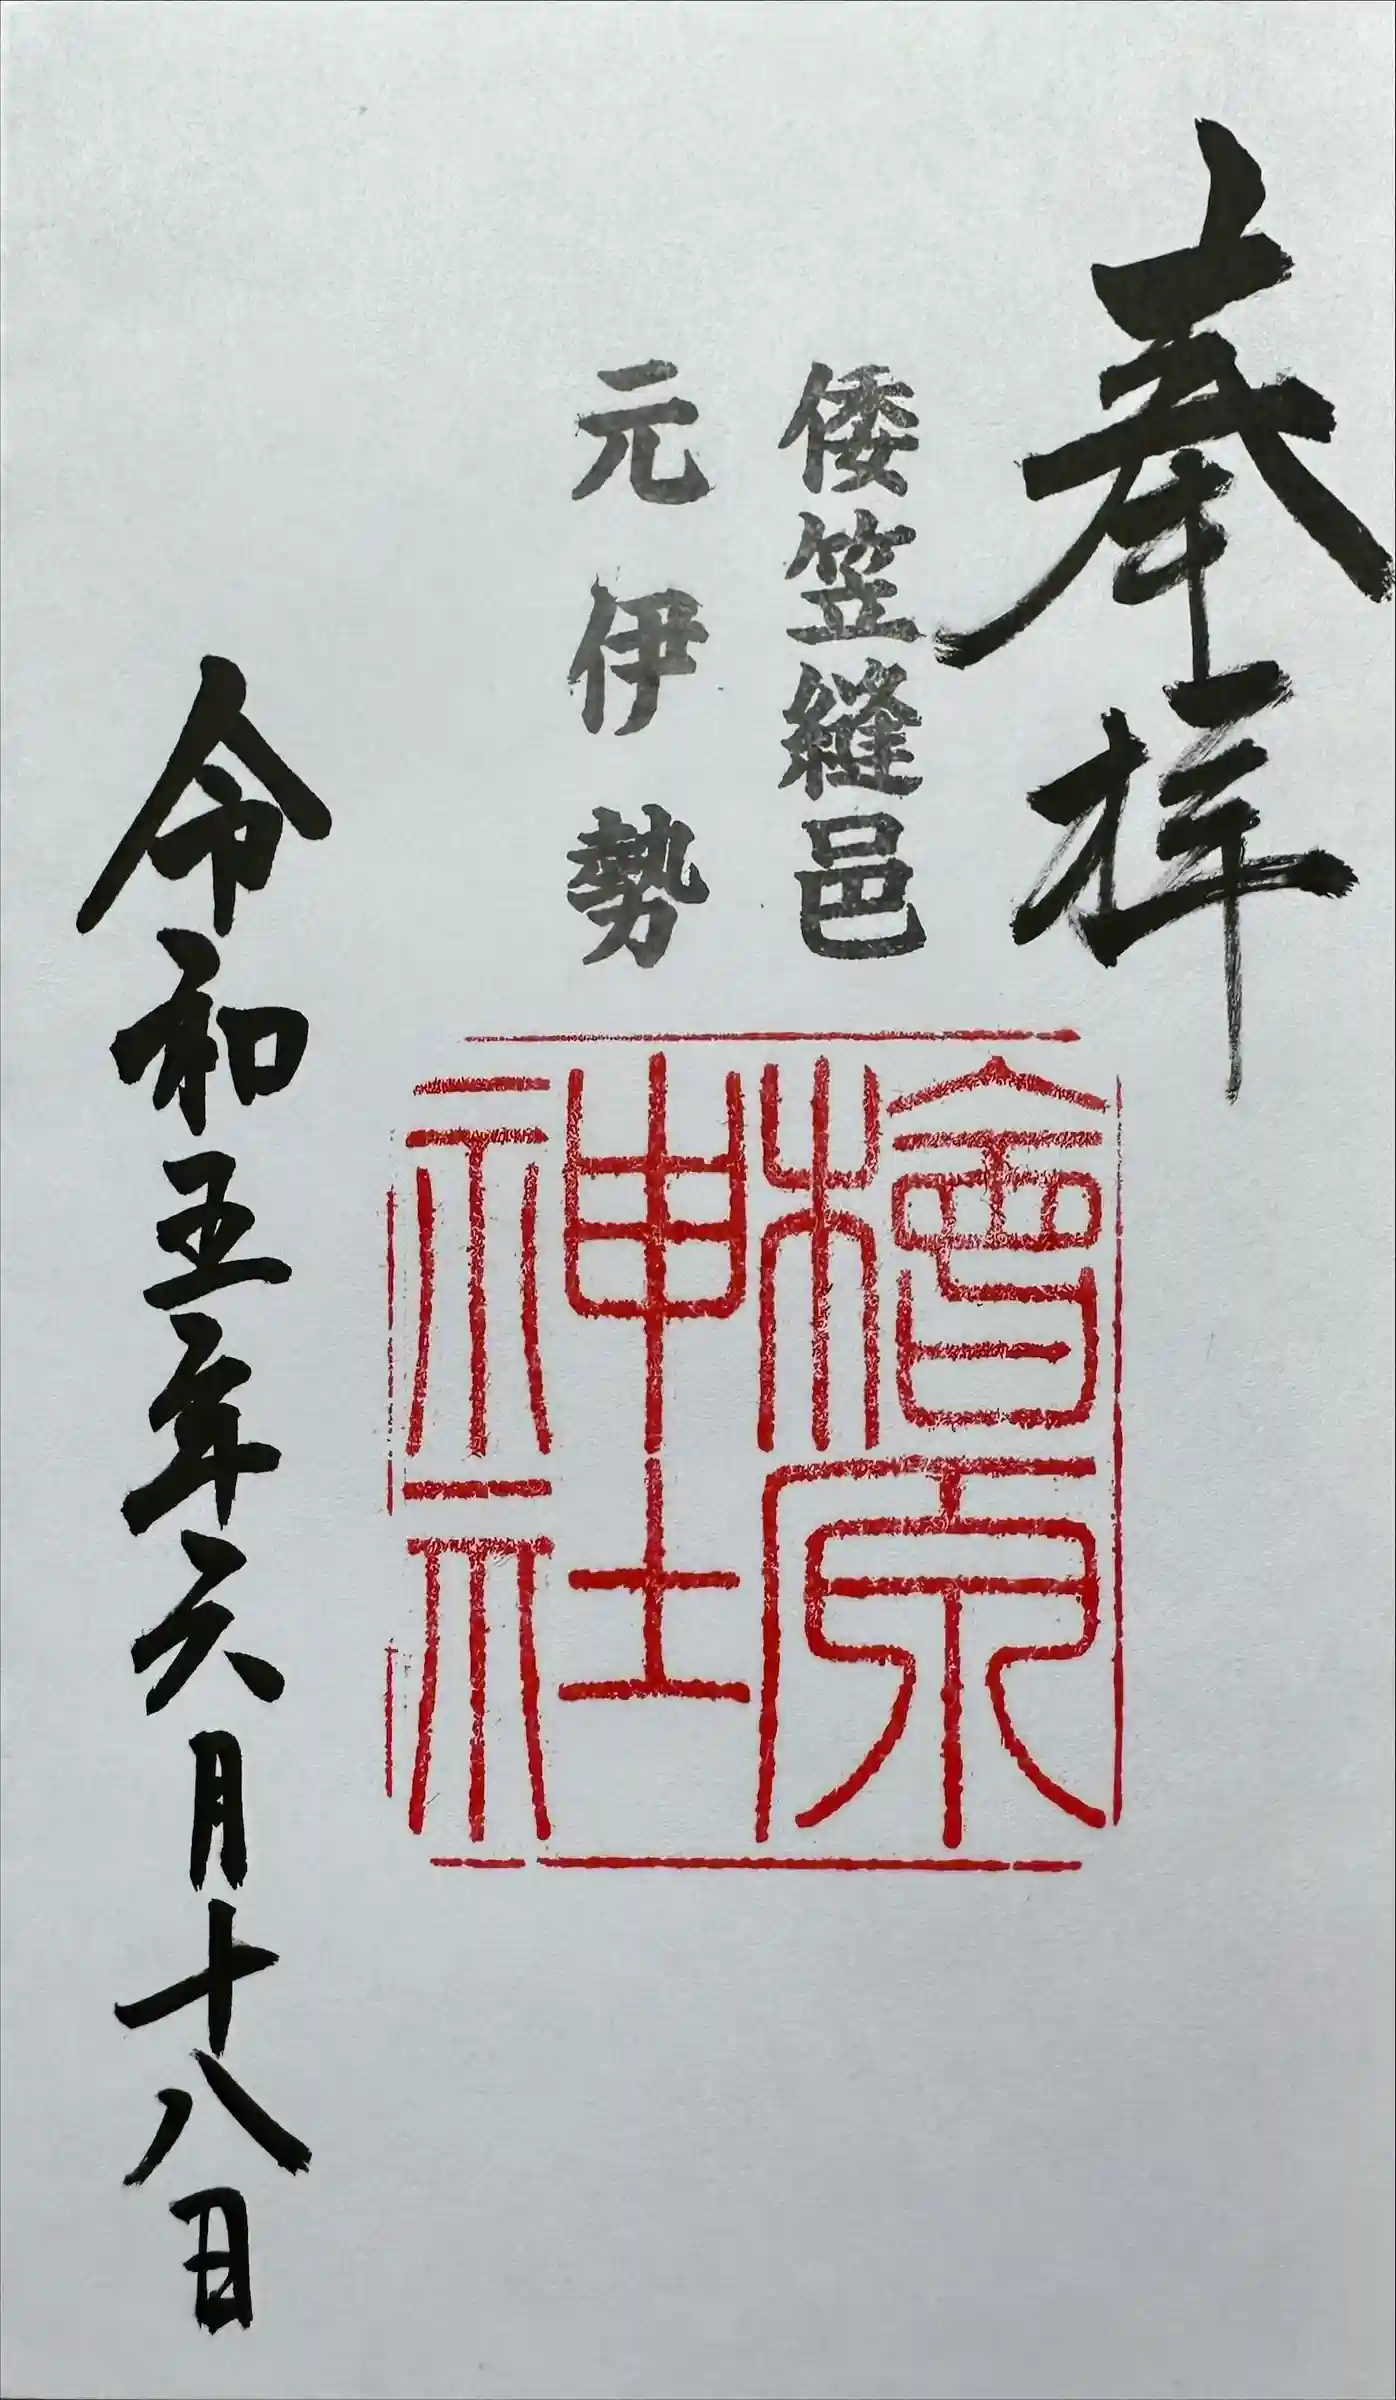 奉拝
倭笠縫邑
元伊勢
檜原
神社
令和五年六月十八日